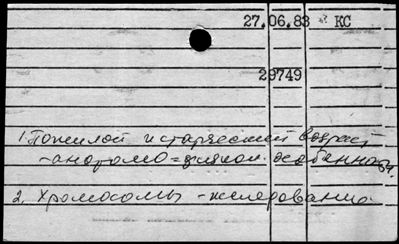 27.06.83 КС
29749
1. Пожилой и старческий возраст
- анатомо = физиол. особенности.
2. Хромосомы - исследование.